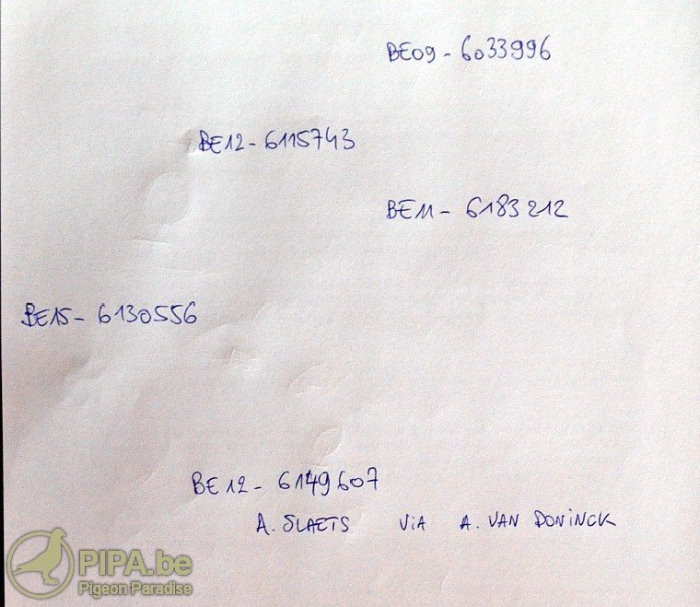 BE09 - 6033996
BE12 - 6115743
BE11 - 6183212
BE15 - 6130556
BE12 - 6149607
A. SLAETS VIA A. VAN DONINCK
PIPA.be
Pigeon Paradise